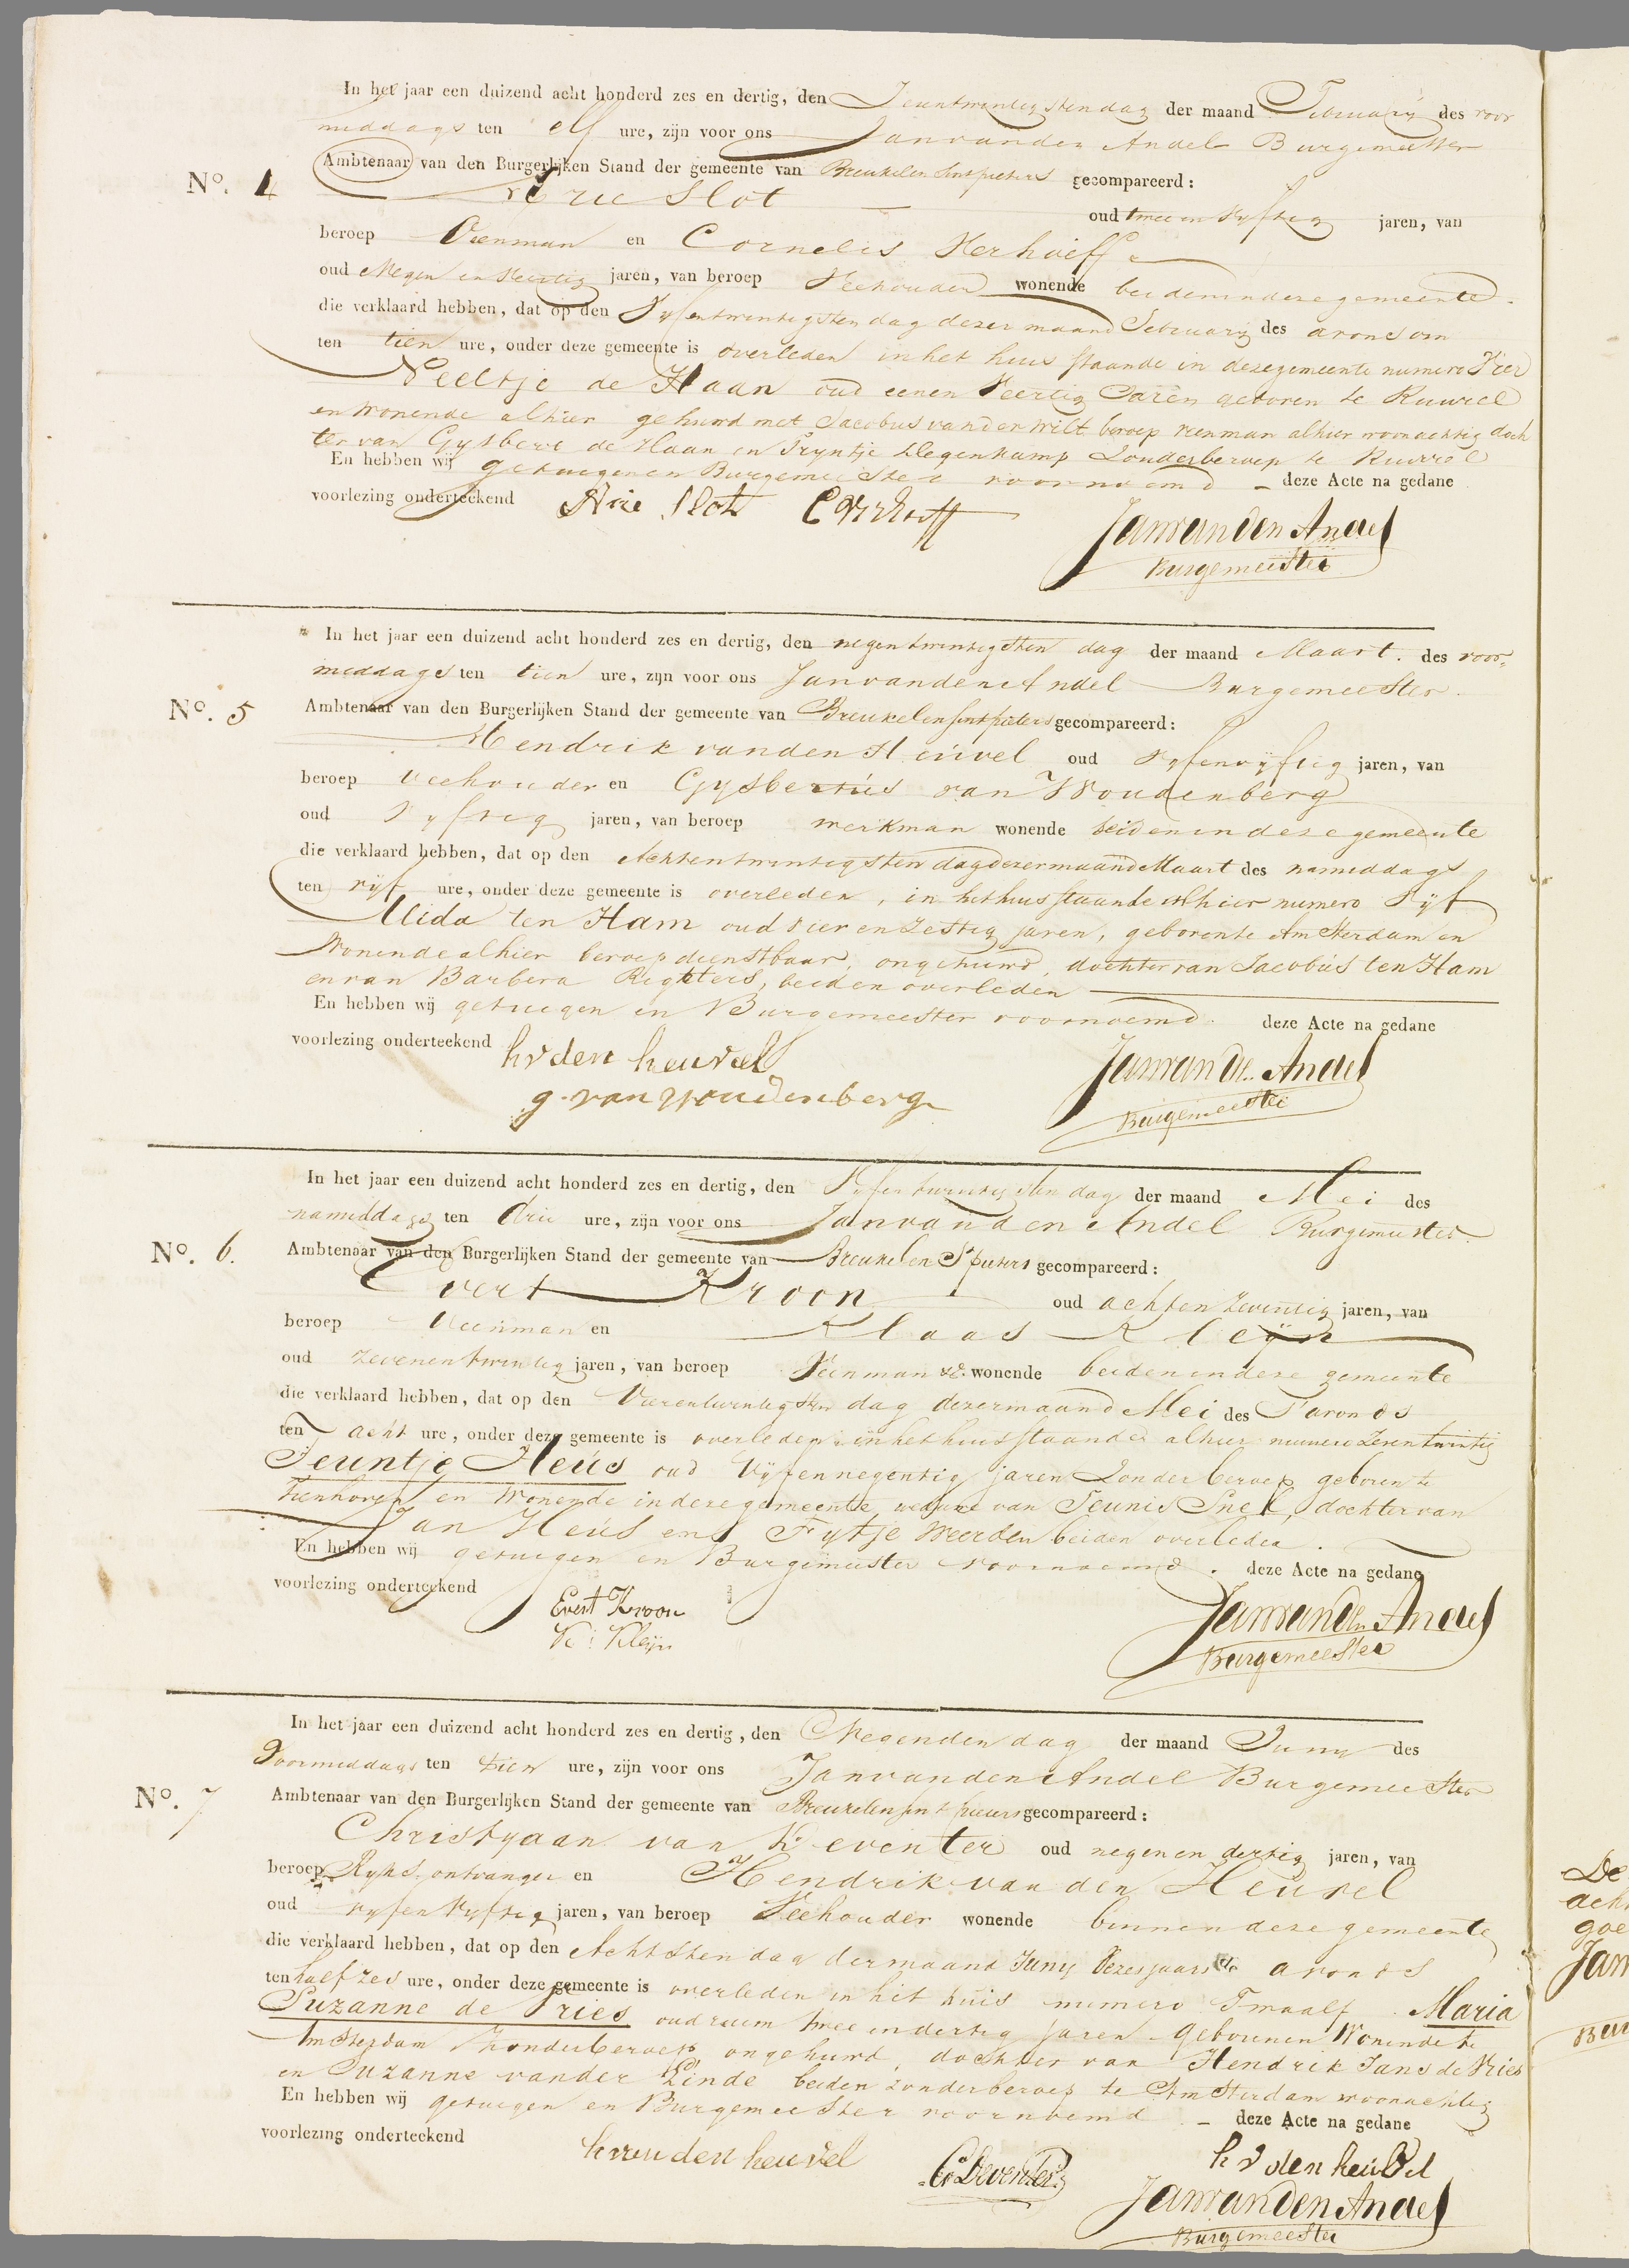 In het jaar een duizend acht honderd zes en dertig, den Seventwentigsten dag der maand February des voor
middags ten elf ure, zijn voor ons Jan van den Andel Burgemeester
Ambtenaar van den Burgerlijken Stand der gemeente van Breukelen Sint pieters gecompareerd:
No. 4
Arie Slot oud twee en vyftig jaren, van
beroep Veenman en Cornelis Verhoeff
oud Negen en Veertig jaren, van beroep Veehouder wonende beiden in deze gemeente.
die verklaard hebben, dat op den Vyfentwintigsten dag dezer maand February des avonds om
ten tien ure, onder deze gemeente is overleden in het huis staande in deze gemeente numero Vier
Neeltje de Haan oud eenen Veertig Jaren geboren te Ruwiel
en Wonende alhier gehuwd met Jacobus van der Wilt beroep veenman alhier woonachtig doch
ter van Gysbert de Haan en Pryntje Degenkamp Zonder beroep te Ruwiel
En hebben wij getuigen en Burgemeester voornoemd – deze Acte na gedane
voorlezing onderteekend Arie Slot C Verhoeff
Jan van den Andel
Burgemeester
In het jaar een duizend acht honderd zes en dertig, den negentwentigsten dag der maand Maart. des voor-
middags ten tien ure, zijn voor ons Jan van den Andel Burgemeester.
No. 5
Ambtenaar van den Burgerlijken Stand der gemeente van Breukelen Sint pieters gecompareerd:
Hendrik van den Heuvel oud vyfenvyftig jaren, van
beroep Veehouder en Gysbertus van Woudenberg
oud Vyftig jaren, van beroep werkman wonende beiden in deze gemeente
die verklaard hebben, dat op den Achtentwintigsten dag dezer maand Maart des namiddags
ten vyf ure, onder deze gemeente is overleden, in het huis staande alhier numero Vyf
Alida ten Ham oud vier en Zestig jaren, geboren te Amsterdam en
Wonende alhier beroep dienstbaar, ongehuwd, dochter van Jacobus ten Ham
en van Barbera Rigters, beiden overleden
En hebben wij getuigen en Burgemeester voornoemd. deze Acte na gedane
voorlezing onderteekend h v den heuvel
g. van Woudenberg
Jan van den Andel
Burgemeester
In het jaar een duizend acht honderd zes en dertig, den Vyfentwintigsten dag der maand Mei des
namiddags ten drie ure, zijn voor ons Jan van den Andel Burgemeester.
No. 6.
Ambtenaar van den Burgerlijken Stand der gemeente van Breukelen St pieters gecompareerd:
Evert Kroon oud achten Zeventig jaren, van
beroep Veenman en Klaas Kleyn
oud Zevenentwintig jaren, van beroep Veenman wonende beiden in deze gemeente
die verklaard hebben, dat op den Vierentwintigsten dag dezer maand Mei des S'avonds
ten acht ure, onder deze gemeente is overleden in het huis staande alhier numero Zeventwintig
Teuntje Heús oud Vyfennegentig jaren Zonder beroep geboren te
Tienhoven en Wonende in deze gemeente weduwe van Teunis Snel, dochter van
Jan Heús en Fytje Weerden beiden overleden.
En hebben wij getuigen en Burgemeester voornoemd. deze Acte na gedane
voorlezing onderteekend
Evert Kroon
K: Kleyn
Jan van den Andel
Burgemeester
In het jaar een duizend acht honderd zes en dertig, den Negenden dag der maand Juny des
Voormiddags ten tien ure, zijn voor ons Jan van den Andel Burgemeester
No. 7
Ambtenaar van den Burgerlijken Stand der gemeente van Breukelen sint pieters gecompareerd:
Christyaan van Deventer oud negenen dertig jaren, van
beroep Ryks ontvanger en Hendrik van den Heuvel
oud vyfenVyftig jaren, van beroep Veehouder wonende binnen deze gemeente
die verklaard hebben, dat op den Achtsten dag der maand Juny dezes jaars des avonds
ten half zes ure, onder deze gemeente is overleden in het huis numero Twaalf. Maria
Suzanne de Vries oud ruim twee en dertig jaren Geboren en Wonende te
Amsterdam Zonder beroep ongehuwd, dochter van Hendrik Jans de Vries
en Suzanne van der Linde beiden zonder beroep te Amsterdam woonachtig
En hebben wij getuigen en Burgemeester voornoemd – deze Acte na gedane
voorlezing onderteekend
h van den heuvel
C v Deventer
h v den heuvel
Jan van den Andel
Burgemeester
De
goe
Jan